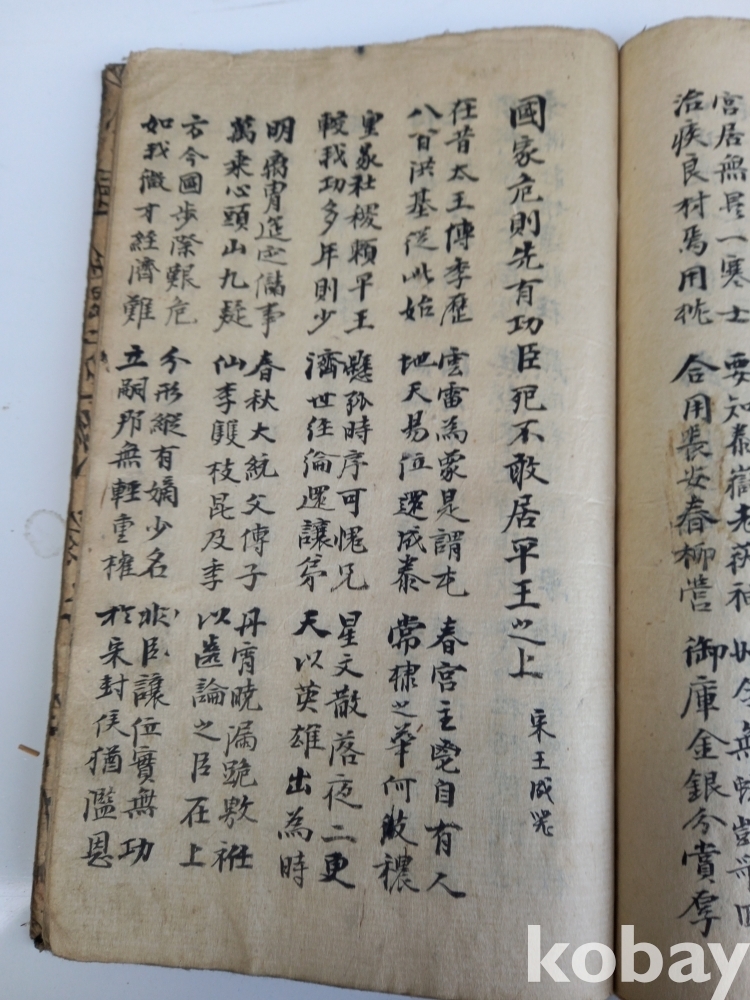 宮居無是一寒士 要知泰嶽老 神 如今無
治疾良材焉用 合用長安春柳營 御庫金銀分賞
國家危則先有功臣死不敢居平王之上 宋王成器
在昔太王傳季歷 雲雷為蒙是謂屯 春宮主鬯自有人
八百洪基從此始 地天易位還成泰 常棣之華何彼穠
皇家社稷賴平王 懸弧時序可愧兄 星文散落夜二更
較我功多年則少 濟世経綸還讓弟 天以英雄出為時
明廟胄筵定儲事 春秋大統文傳子 丹霄曉漏跪敷衽
萬乘心頭山九疑 仙李雙枝昆及季 以 論之臣在上
方今國步際艱危 分形縱有嫡少名 非臣讓位實無功
如我微才経濟難 立嗣那無輕重權 於宋封侯猶濫恩
kobay